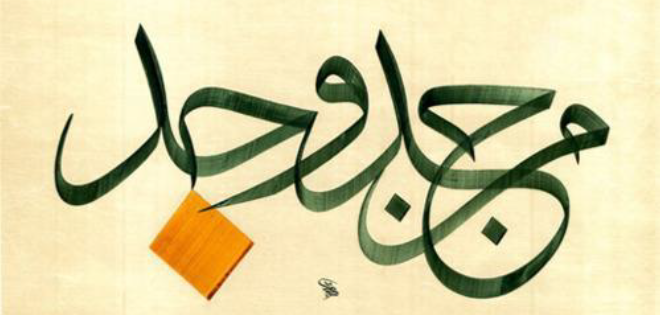 من جد وجد